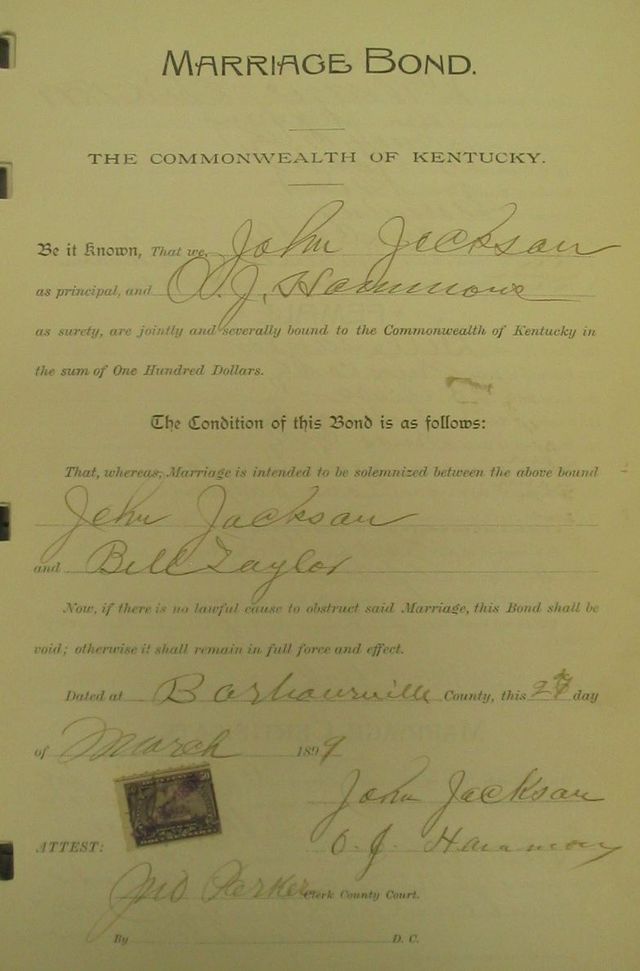 MARRIAGE BOND.
THE COMMONWEALTH OF KENTUCKY.
Be it Known, That we, John Jackson
as principal, and O. J. Hammons
as surety, are jointly and severally bound to the Commonwealth of Kentucky in
the sum of One Hundred Dollars.
The Condition of this Bond is as follows:
That, whereas, Marriage is intended to be solemnized between the above bound
John Jackson
and Bell Taylor
Now, if there is no lawful cause to obstruct said Marriage, this Bond shall be
void; otherwise it shall remain in full force and effect.
Dated at Barbourville County, this day
of March 1899
John Jackson
ATTEST: O. J. Hammons
Jno Parker Clerk County Court.
By D. C.